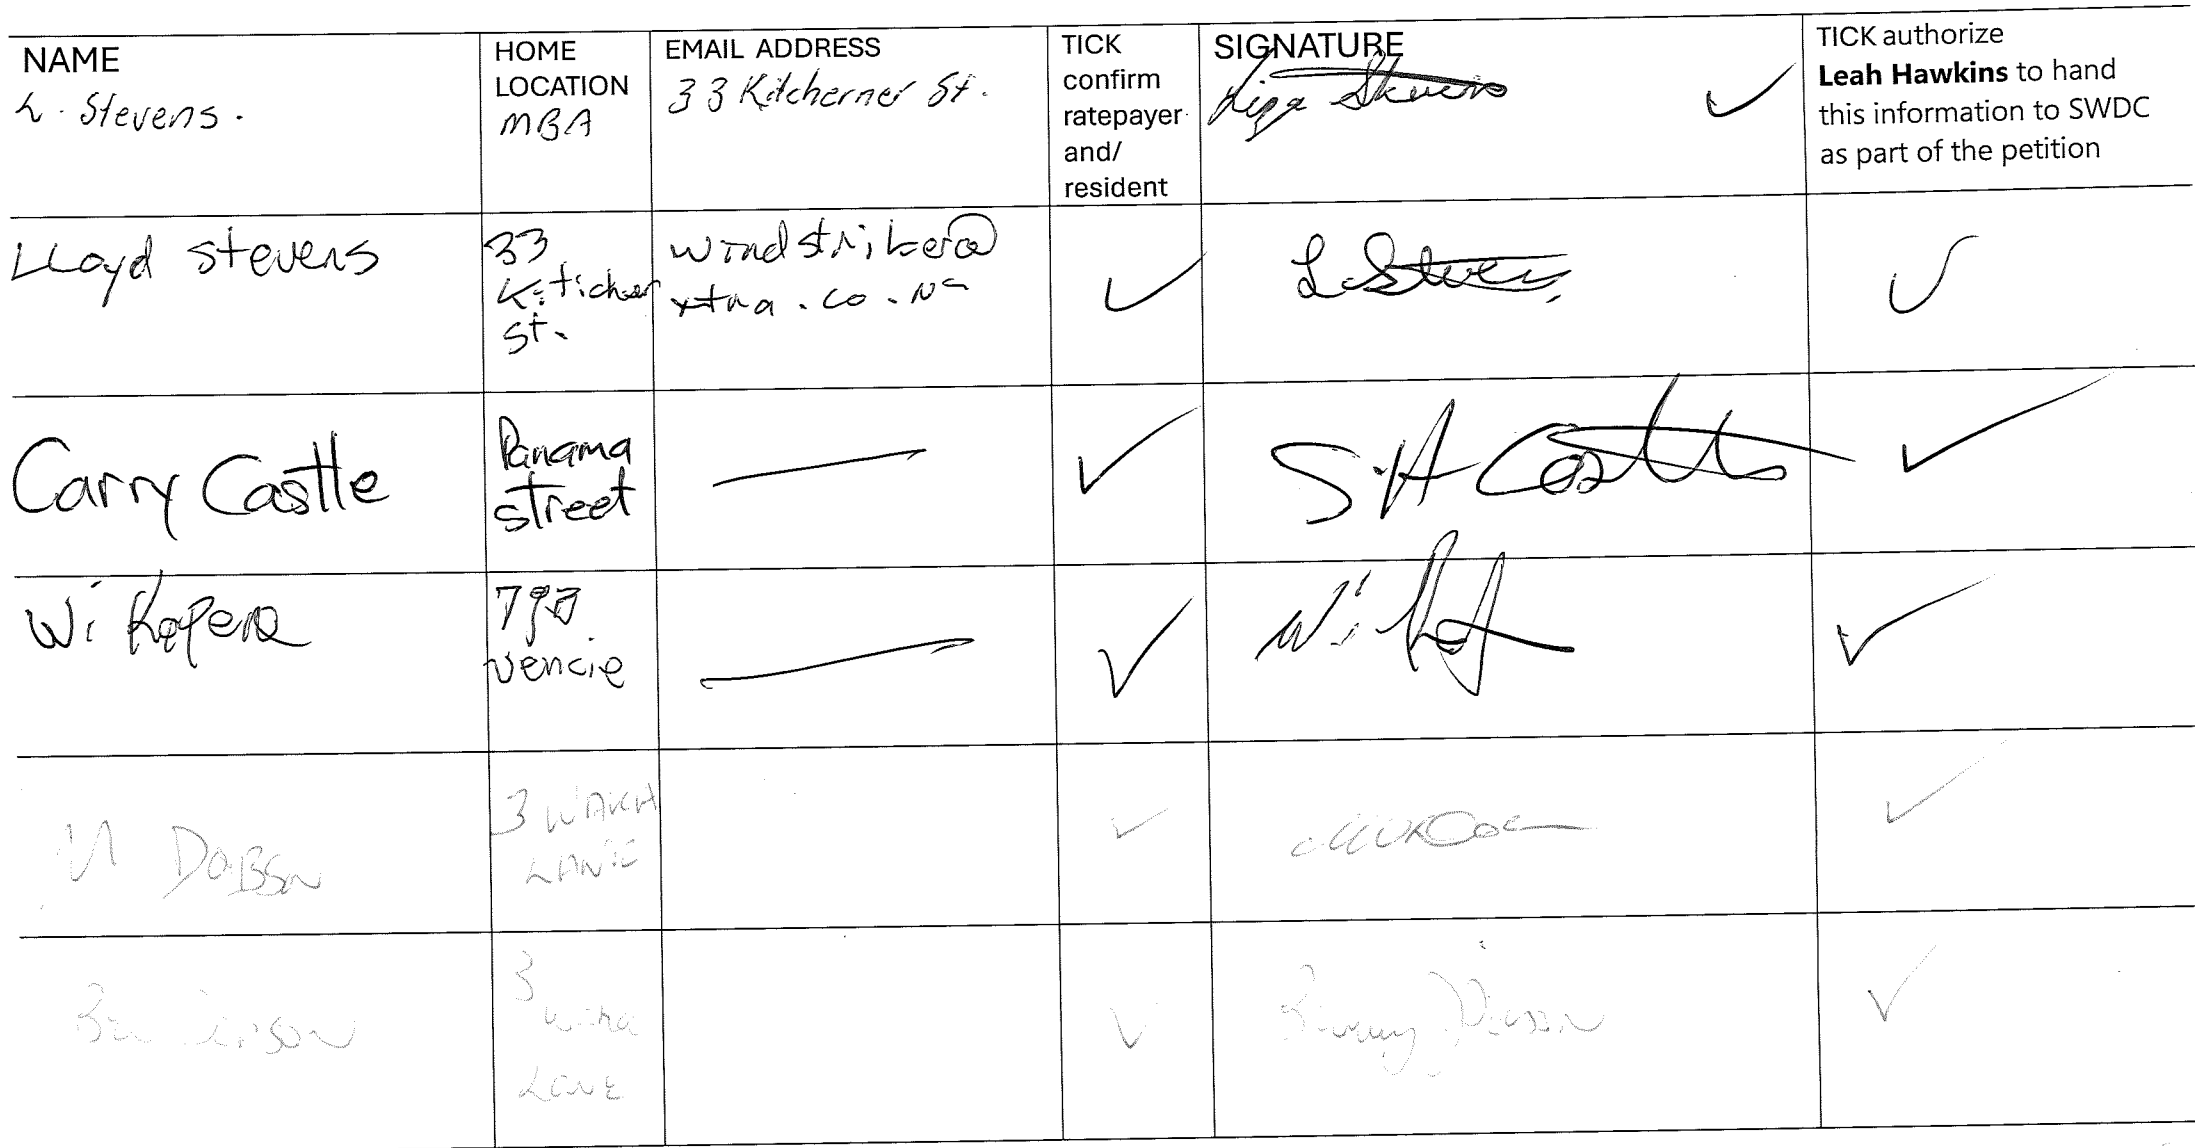 NAME
L. Stevens.
HOME
LOCATION
MBA
EMAIL ADDRESS
33 Kitcherner St.
TICK
confirm
ratepayer
and/
resident
SIGNATURE
TICK authorize
Leah Hawkins to hand
this information to SWDC
as part of the petition
Lloyd Stevens
33
st.
windstriker@
xtra.co.nz
L Stevens
Carry Castle
Panama
street
S.H Castle
Wi Kapera
79B
vencie
Wi
DOBSN
3
LANE
3
LANE